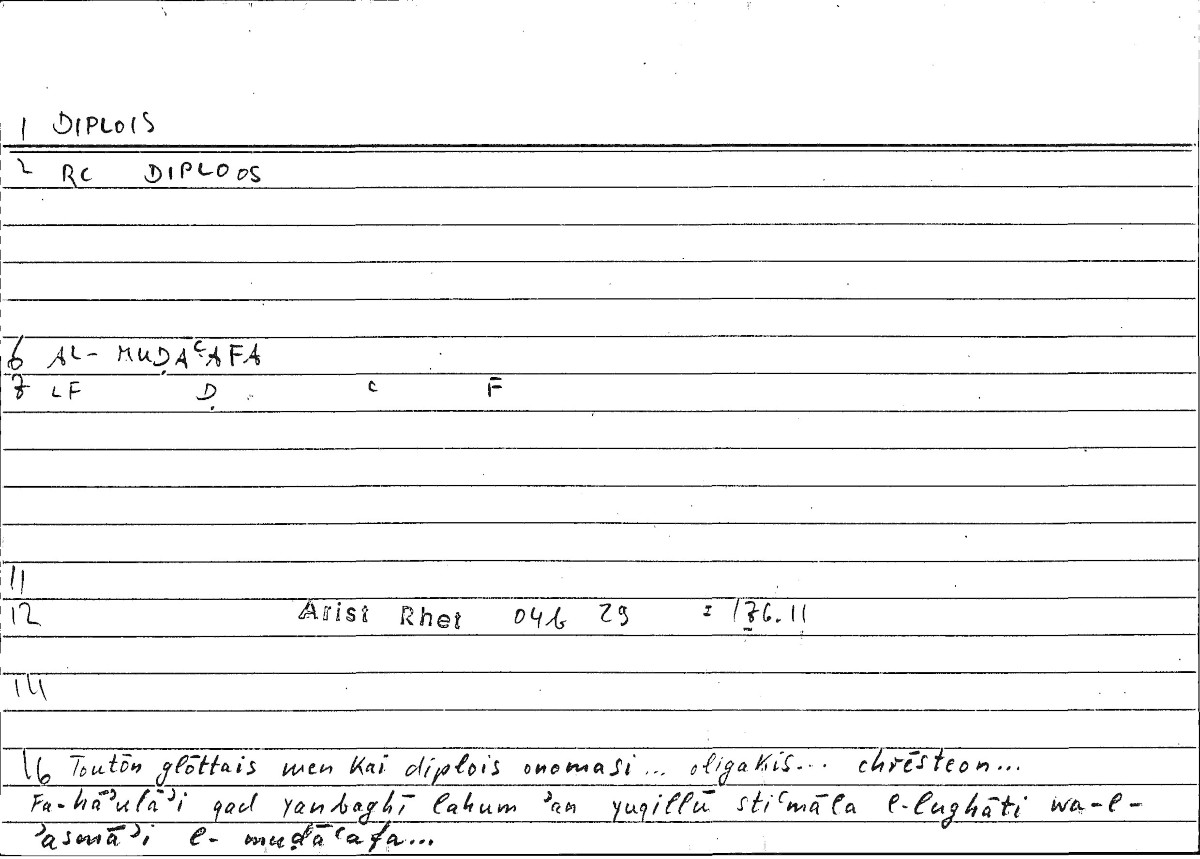 1 DIPLOIS
2 RC DIPLOOS
6 AL-MUḌAʿAFA
7 LF Ḍ ʿ F
11
12 Arist Rhet 04b 29 = 176.11
14
16 Toutōn glōttais men kai diplois onomasi... oligakis... chrēsteon...
Fa-hāʾulāʾi qad yanbaghī lahum ʾan yuqillū stiʿmāla l-lughāti wa-l-
ʾasmāʾi l-muḍāʿafa...